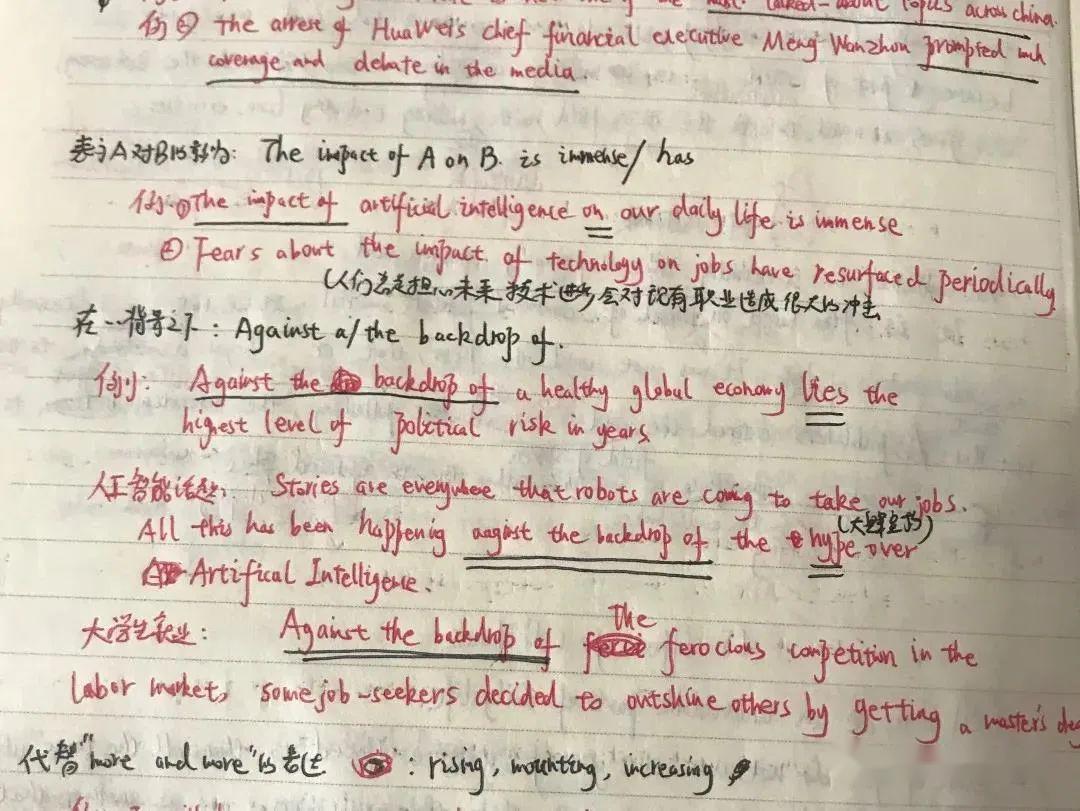 talked-about topics across china.
例② The arrest of HuaWei's chief financial executive Meng Wanzhou prompted much
coverage and debate in the media.
表示A对B的影响: The impact of A on B. is immense/ has
例:①The impact of artificial intelligence on our daily life is immense
② Fears about the impact of technology on jobs have resurfaced periodically
人们总是担心未来技术进步会对现有职业造成很大的冲击
在一背景之下: Against a/the backdrop of.
例: Against the backdrop of a healthy global economy lies the
highest level of political risk in years
人工智能话题: Stories are everywhee that robots are coming to take our jobs.
(大肆宣扬)
All this has been happenig aaginst the backdrop of the hype over
Artifical Intelligence.
The
大学生就业: Against the backdrop of ferocious competition in the
labor market, some job-seekers decided to outshine others by getting a master's deg
代替"more and more"的表达: rising, mounting, increasing